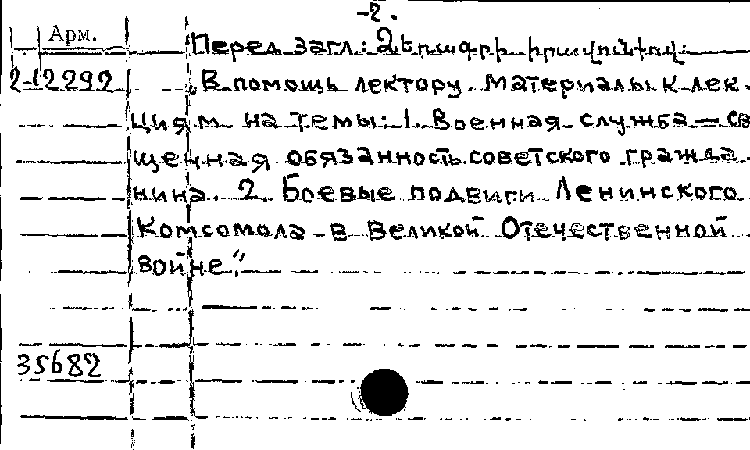 -2.
Арм.
Перед загл.: Ձեռագրի իրավունքով.
2-12292 „В помощь лектору. Материалы к лек-
циям на темы: 1. Военная служба — св
щенная обязанность советского гражда
нина. 2. Боевые подвиги Ленинского
Комсомола в Великой Отечественной
войне“
35682